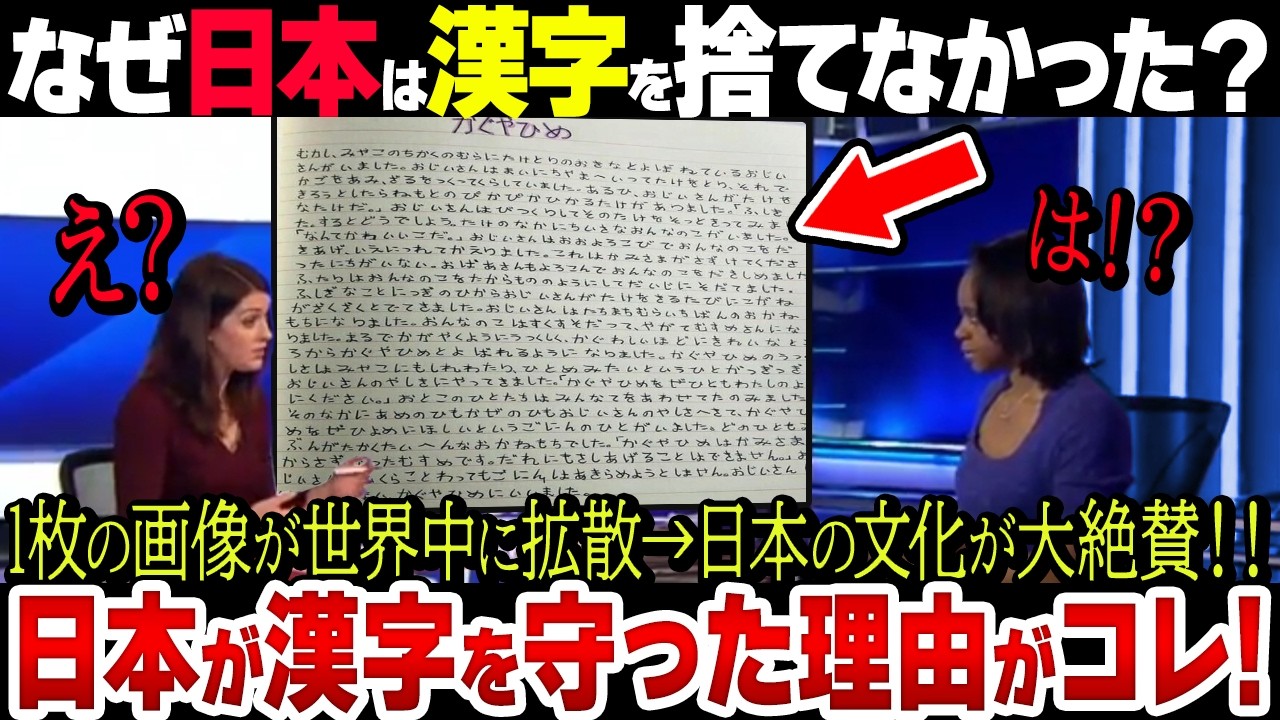 なぜ日本は漢字を捨てなかった？
かぐやひめ
むかし、みやこのちかくのむらにたけとりのおきなとよばれているおじい
さんがいました。おじいさんはまいにちやまへいってたけをとり、それで
かごをあみ、ざるをつくってくらしていました。あるひ、おじいさんがたけを
きろうとしたらねもとのぴかぴかひかるたけがありました。「ふしぎ
なたけだ。」おじいさんはびっくりしてそのたけをそっときってみまし
た。するとどうでしょう。たけのなかにちいさなおんなのこがいました。
「なんてかわいいこだ。」おじいさんはおおよろこびでおんなのこを
きあげ、いえにつれてかえりました。これはかみさまがさずけてくださ
ったにちがいない。おばあさんもよろこんでおんなのこをだきしめました
ふたりはおんなのこをたからものようにしてだいじにそだてました。
ふしぎなことにつぎのひからおじいさんがたけをきるたびにこがね
がざくざくとでてきました。おじいさんはたちまちむらいちばんのおかね
もちになりました。おんなのこはすくすくそだって、やがてむすめさんにな
りました。まるでかがやくようにうつくしく、かぐわしいほどにきれいなとこ
ろからかぐやひめとよばれるようになりました。かぐやひめのうつ
しさはみやこにもしれわたり、ひとめみたいというひとがつぎつぎ
おじいさんのやしきにやってきました。「かぐやひめをぜひともわたしのよ
にください。」おとこのひとたちはみんなてをあわせてたのみました
そのなかにあめのひもかぜのひもおじいさんのやしきへきて、かぐやひ
めをぜひよめにほしいというごにんのひとがいました。どのひとも
ぶんがたかくたいへんなおかねもちでした。「かぐやひめはかみさま
からさずかったむすめです。だれにもさしあげることはできません。」お
じいさんがいくらことわってもごにんはあきらめようとしません。おじいさん
かぐやひめにいいました。
え？
は！？
1枚の画像が世界中に拡散→日本の文化が大絶賛！！
日本が漢字を守った理由がコレ！